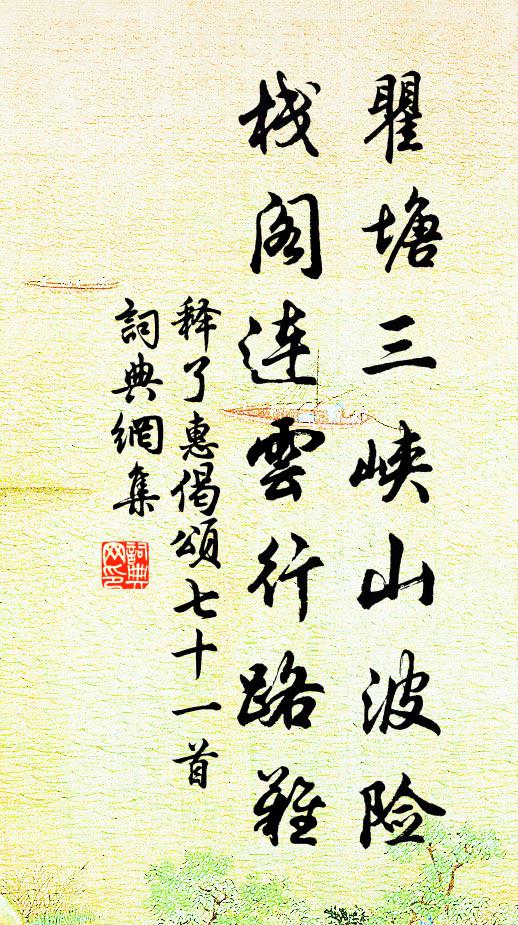 瞿塘三峡山波险
栈阁连雲行路難
释了惠偈颂七十一首
詞典網集
詞典网印